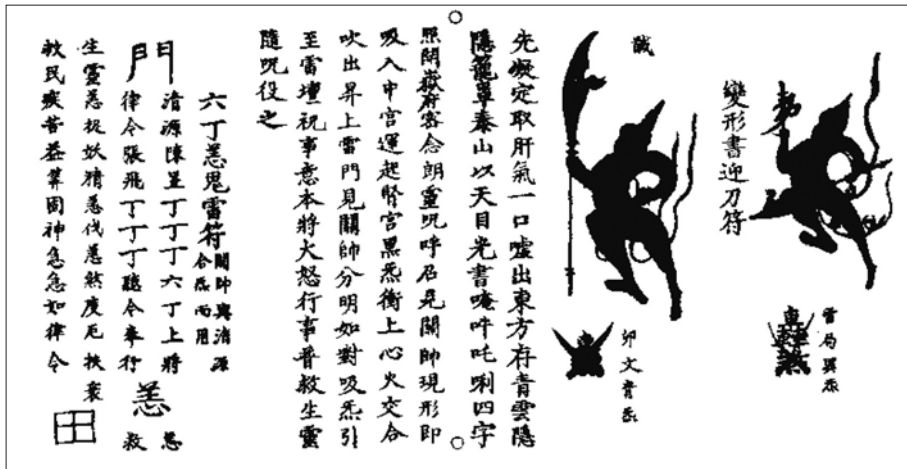 變形書迎刀符
誠
雷局
卯文青炁
先凝定取肝氣一口噓出東方存青雲隱
隱籠罩泰山以天目光書唵吽吒唎四字
照開嶽府密念朗靈咒呼召見關帥現形即
吸入中宮運起腎宮黑炁衝上心火交合
吹出昇上雷門見關帥分明如對吸炁引
至雷壇祝事意本將大怒行事普救生靈
隨咒役之
六丁恙鬼雷符
關帥與清源
合炁而用
門
清源陳呈丁丁丁六丁上將
律令張飛丁丁丁聽令奉行
生靈恙捉妖精恙伐恙煞度厄扶衰
救民疾苦益筭固神急急如律令
恙
恙
救